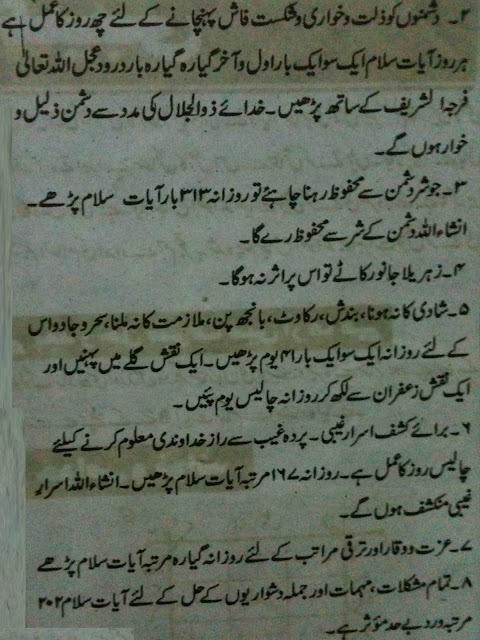 ۲۔ دشمنوں کو ذلت و خواری و شکست فاش پہنچانے کے لئے چھ روز کا عمل ہے
ہر روز آیات سلام ایک سو ایک بار اول و آخر گیارہ گیارہ بار درود عجل اللہ تعالیٰ
فرجہ الشریف کے ساتھ پڑھیں۔ خدائے ذوالجلال کی مدد سے دشمن ذلیل و
خوار ہوں گے۔
۳۔ جو شر دشمن سے محفوظ رہنا چاہئے تو روزانہ ۳۱۳ بار آیات سلام پڑھے۔
انشاء اللہ دشمن کے شر سے محفوظ رے گا۔
۴۔ زہریلا جانور کاٹے تو اس پر اثر نہ ہوگا۔
۵۔ شادی کا نہ ہونا، بندش، رکاوٹ، بانجھ پن، ملازمت کا نہ ملنا، سحر و جادو اس
کے لئے روزانہ ایک سو ایک بار ۴۱ یوم پڑھیں۔ ایک نقش گلے میں پہنیں اور
ایک نقش زعفران سے لکھ کر روزانہ چالیس یوم پئیں۔
۶۔ برائے کشف اسرار غیبی۔ پردہ غیب سے راز خداوندی معلوم کرنے کیلئے
چالیس روز کا عمل ہے۔ روزانہ ۱۶۷ مرتبہ آیات سلام پڑھیں۔ انشاء اللہ اسرار
غیبی منکشف ہوں گے۔
۷۔ عزت و وقار اور ترقی مراتب کے لئے روزانہ گیارہ مرتبہ آیات سلام پڑھے
۸۔ تمام مشکلات، مہمات اور جملہ دشواریوں کے حل کے لئے آیات سلام ۲۰۲
مرتبہ ورد بے حد مؤثر ہے۔